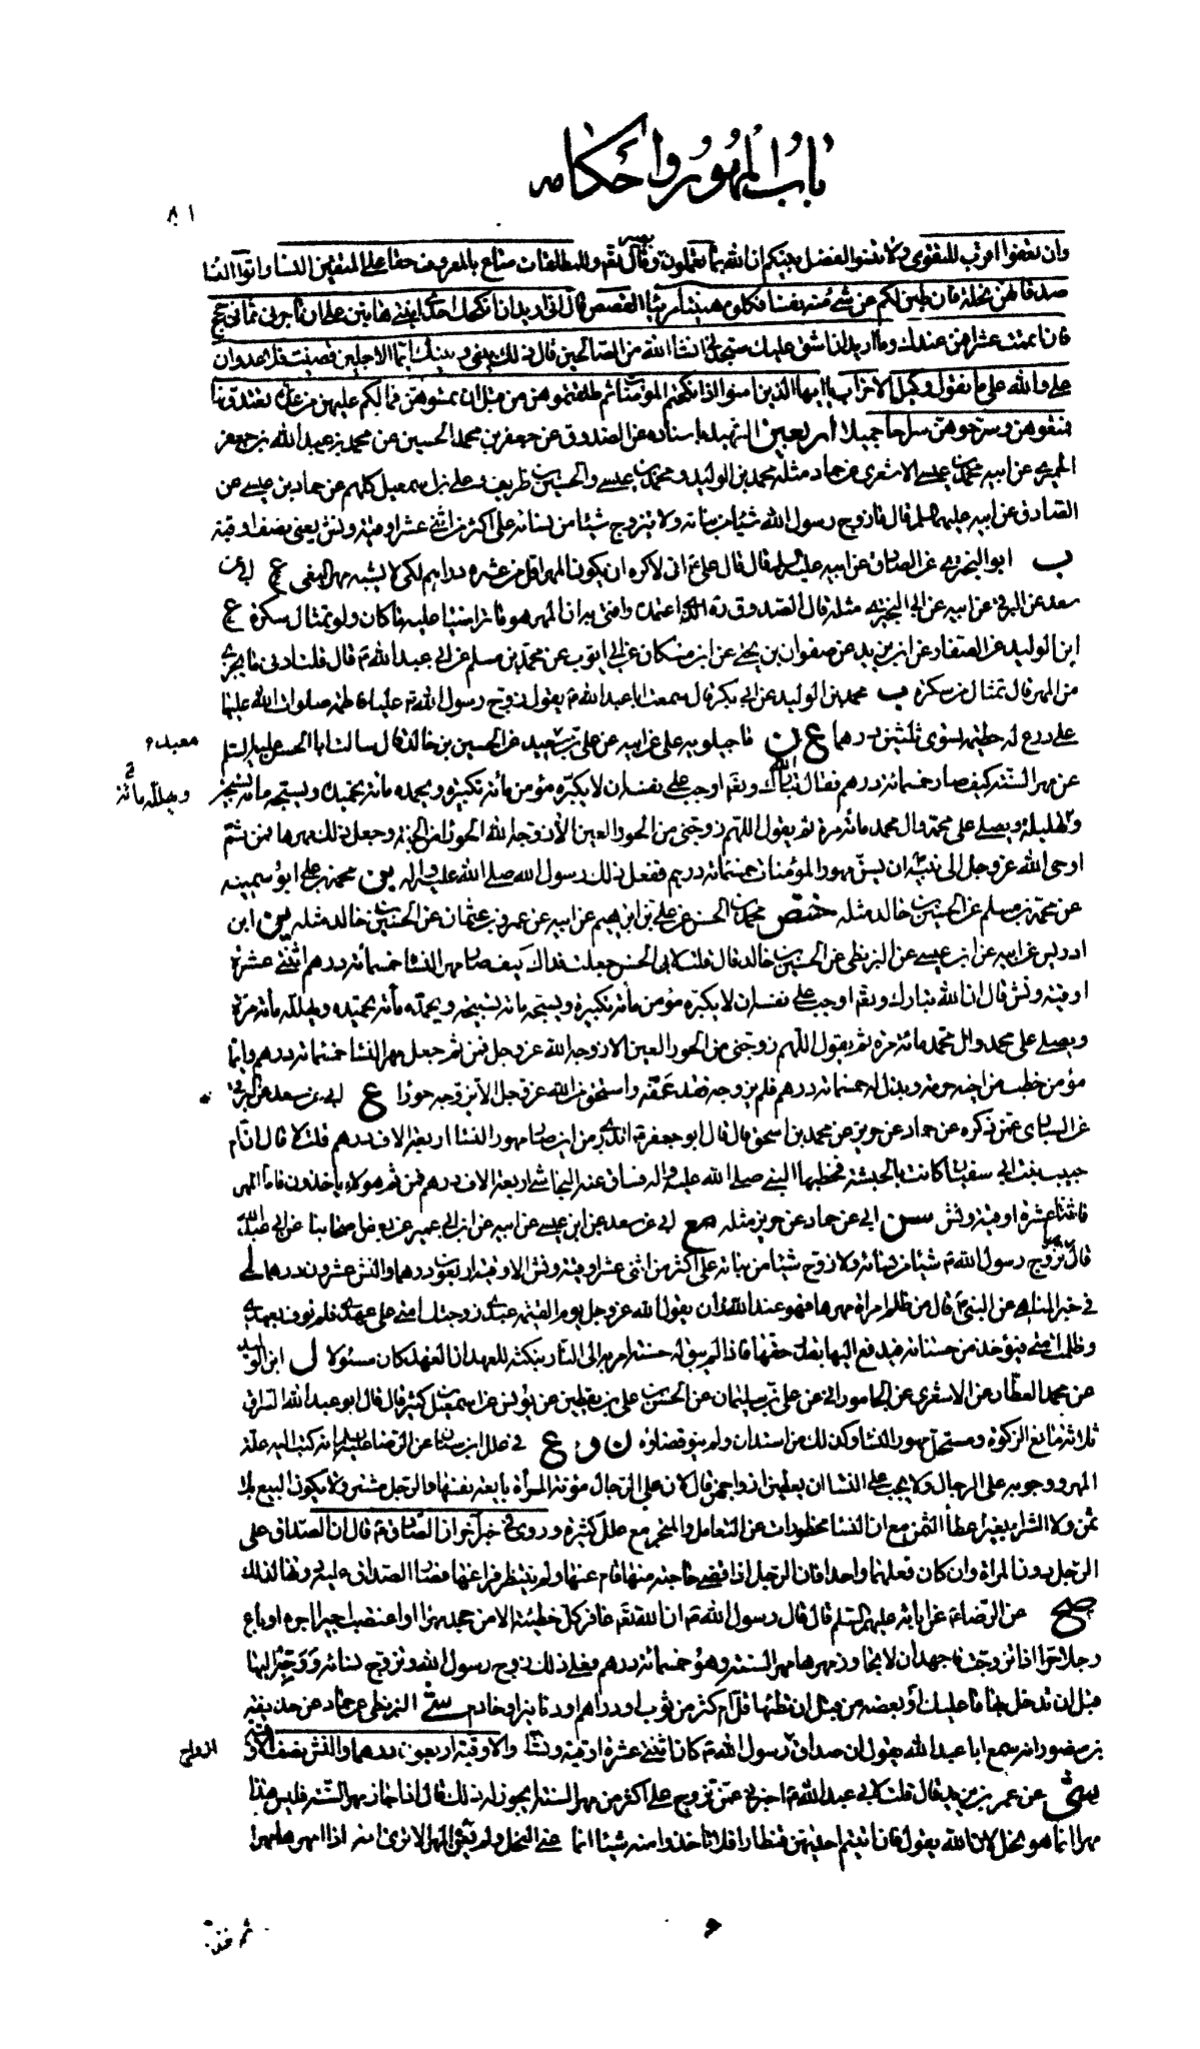 باب المهور واحكامه
٨١
وان تعفوا اقرب للتقوى ولا تنسوا الفضل بينكم ان الله بما تعملون بصير وقال تعالى وللمطلقات متاع بالمعروف حقا على المتقين النساء واتوا النساء
صدقاتهن نحلة فان طبن لكم عن شئ منه نفسا فكلوه هنيئا مريئا القصص قال انى اريد ان انكحك احدى ابنتى هاتين على ان تأجرنى ثمانى حجج
فان اتممت عشرا فمن عندك وما اريد ان اشق عليك ستجدنى انشاالله من الصالحين قال ذلك بينى وبينك ايما الاجلين قضيت فلا عدوان
على والله على ما نقول وكيل الاحزاب يا ايها الذين امنوا اذا نكحتم المؤمنات ثم طلقتموهن من قبل ان تمسوهن فمالكم عليهن من عدة تعتدونها
فمتعوهن وسرحوهن سراحا جميلا اربعين الشهيد باسناده عن الصدوق عن جعفر بن محمد الحسين عن محمد بن عبد الله بن جعفر
الحميرى عن ابيه محمد بن عيسى الاشعرى عن حماد مثله محمد بن الوليد ومحمد بن عيسى والحسن بن ظريف وعلى بن اسمعيل كلهم عن حماد بن عيسى عن
الصادق عن ابيه عليهما السلم قال ما زوج رسول الله شيئا من بناته ولا تزوج شيئا من نسائه على اكثر من اثنى عشر اوقية ونش يعنى نصف اوقية
ب ابو البخترى عن الصادق عن ابيه عليه السلم قال قال على ع انى لاكره ان يكون المهر اقل من عشرة دراهم لكى لا يشبه مهر البغى ع ابى عن
سعد عن البرقى عن ابيه عن ابى البخترى مثله قال الصدوق ره الذى اعتمده وافتى به ان المهر هو ما تراضيا عليه ما كان ولو تمثال سكرة ع
ابن الوليد عن الصفار عن ابن يزيد عن صفوان بن يحيى عن ابن مسكان عن ابى ايوب عن محمد بن مسلم عن ابى عبد الله ع قال قلت ادنى ما يجزى
من المهر قال تمثال من سكرة ب محمد بن الوليد عن ابن بكير قال سمعت ابا عبد الله ع يقول زوج رسول الله ص عليا فاطمة صلوات الله عليهما
على درع له حطمية يسوى ثلثين درهما ع ن ماجيلويه على عن ابيه عن على بن معبد عن الحسين بن خالد قال سالت ابا الحسن عليه السلم
معبد
عن مهر السنة كيف صار خمسمائة درهم فقال ان الله تبارك وتعم اوجب على نفسه ان لا يكبره مؤمن مائة تكبيرة ويحمده مائة تحميدة ويسبحه مائة تسبيحة
ويهلله مائة
وتهليلة ويصلى على محمد وال محمد مائة مرة ثم يقول اللهم زوجنى من الحور العين الا زوجه الله الحوراء من الجنة وجعل ذلك مهرها فمن ثم
اوحى الله عز وجل الى نبيه ان يسن مهور المؤمنات خمسمائة درهم ففعل ذلك رسول الله صلى الله عليه واله ين محمد بن على ابو سمينه
عن محمد بن مسلم عن الحسين بن خالد مثله ختص محمد بن الحسن عن على بن ابرهيم عن ابيه عن عمرو بن عثمان عن الحسين بن خالد مثله ين ابن
ادريس عن ابيه عن ابن عيسى عن البزنطى عن الحسين بن خالد قال قلت لابى الحسن جعلت فداك كيف صار مهر النسا خمسمائة درهم اثنى عشرة
اوقية ونش قال ان الله تبارك وتعم اوجب على نفسه ان لا يكبره مؤمن مائة تكبيرة ويسبحه مائة تسبيحة ويحمده مائة تحميدة ويهلله مائة مرة
ويصلى على محمد وال محمد مائة مرة ثم يقول اللهم زوجنى من الحور العين الا زوجه الله عز وجل فمن ثم جعل مهر النسا خمسمائة درهم وايما
مؤمن خطب من اخيه حرمة وبذل له خمسمائة درهم فلم يزوجه فقد عقه واستحق من الله عز وجل الا يزوجه حورا ع ابى عن سعد عن البرقى
عن السيارى عمن ذكره عن حماد عن حريز عن محمد بن اسحق قال قال ابو جعفر ع اتدرى من اين صار مهور النسا اربعة الاف درهم قلت لا قال ان ام
حبيبة بنت ابى سفيان كانت بالحبشة فخطبها النبى صلى الله عليه واله فساق عنه النجاشى اربعة الاف درهم فمن ثم هولاء ياخذون فاما المهر
فاثنتا عشرة اوقية ونش سن ابى عن حماد عن حريز مثله مع ابى عن سعد عن ابن عيسى عن ابيه عن ابن ابى عمير عن بعض اصحابنا عن ابى عبد الله
قال ما تزوج رسول الله ص شيئا من نسائه ولا زوج شيئا من بناته على اكثر من اثنى عشر اوقية ونش الاوقية اربعون درهما والنش عشرون درهما لى
فى خبر المناهى عن النبى ص قال من ظلم امراة مهرها فهو عند الله زان يقول الله عز وجل يوم القيمة عبدى زوجتك امتى على عهدى فلم توف بعهدى
وظلمت امتى فيؤخذ من حسناته فيدفع اليها بقدر حقها فاذا لم يبق له حسنة امر به الى النار بنكثه للعهد ان العهد كان مسئولا ل ابن الوليد
عن محمد العطار عن الاشعرى عن الجامورانى عن على بن سليمان عن الحسن بن على بن يقطين عن يونس عن اسمعيل بن كثير قال قال ابو عبد الله السراق
ثلاثة مانع الزكوة ومستحل مهور النسا وكذلك من استدان ولم ينو قضاؤه ن و ع فى علل ابن سنان عن الرضا عليه السلم انه كتب اليه علة
المهر ووجوبه على الرجال ولا يجب على النسا ان يعطين ازواجهن قال لان على الرجال مؤنة المراة بايعة نفسها والرجل مشتر ولا يكون البيع بلا
ثمن ولا الشراء بغير اعطاء الثمن مع ان النسا محظورات عن التعامل والمتجر مع علل كثيرة وروى فى خبر اخر ان الصادق ع قال ان الصداق على
الرجل دون المراة وان كان فعلهما واحدا فان الرجل اذا قضى حاجته منها قام عنها ولم ينتظر فراغها فصار الصداق عليه دونها لذلك
صح عن الرضا ع عن ابائه عليهم السلم قال قال رسول الله ص ان الله تعم غافر كل خطيئة الا من جحد مهرا او اغتصب اجيرا اجره او باع
رجلا حرا اذا تزوجت فاجهد ان لا يجاوز مهرها مهر السنة وهو خمسمائة درهم فعلى ذلك زوج رسول الله وتزوج نسائه ووجه اليها
قبل ان تدخل بها ما عليك او بعضه من قبل ان تطأها قل ام كثر من ثوب او دراهم او دنانير او خادم شى البزنطى عن حماد عن حذيفة
بن منصور انه سمع ابا عبد الله يقول ان صداق رسول الله ص كان اثنى عشرة اوقية ونشا والاوقية اربعون درهما والنش نصف الاوقية
ازواج
شى عن عمر بن يزيد قال قلت لابى عبد الله ع اخبرنى عمن تزوج على اكثر من مهر السنة ايجوز له ذلك قال اذا جاز مهر السنة فليس هذا
مهرا انما هو نحل لان الله يقول فان اتيتم احديهن قنطارا فلا تاخذوا منه شيئا انما عنى النحل ولم يعن المهر الا ترى انه اذا امهرها مهرا